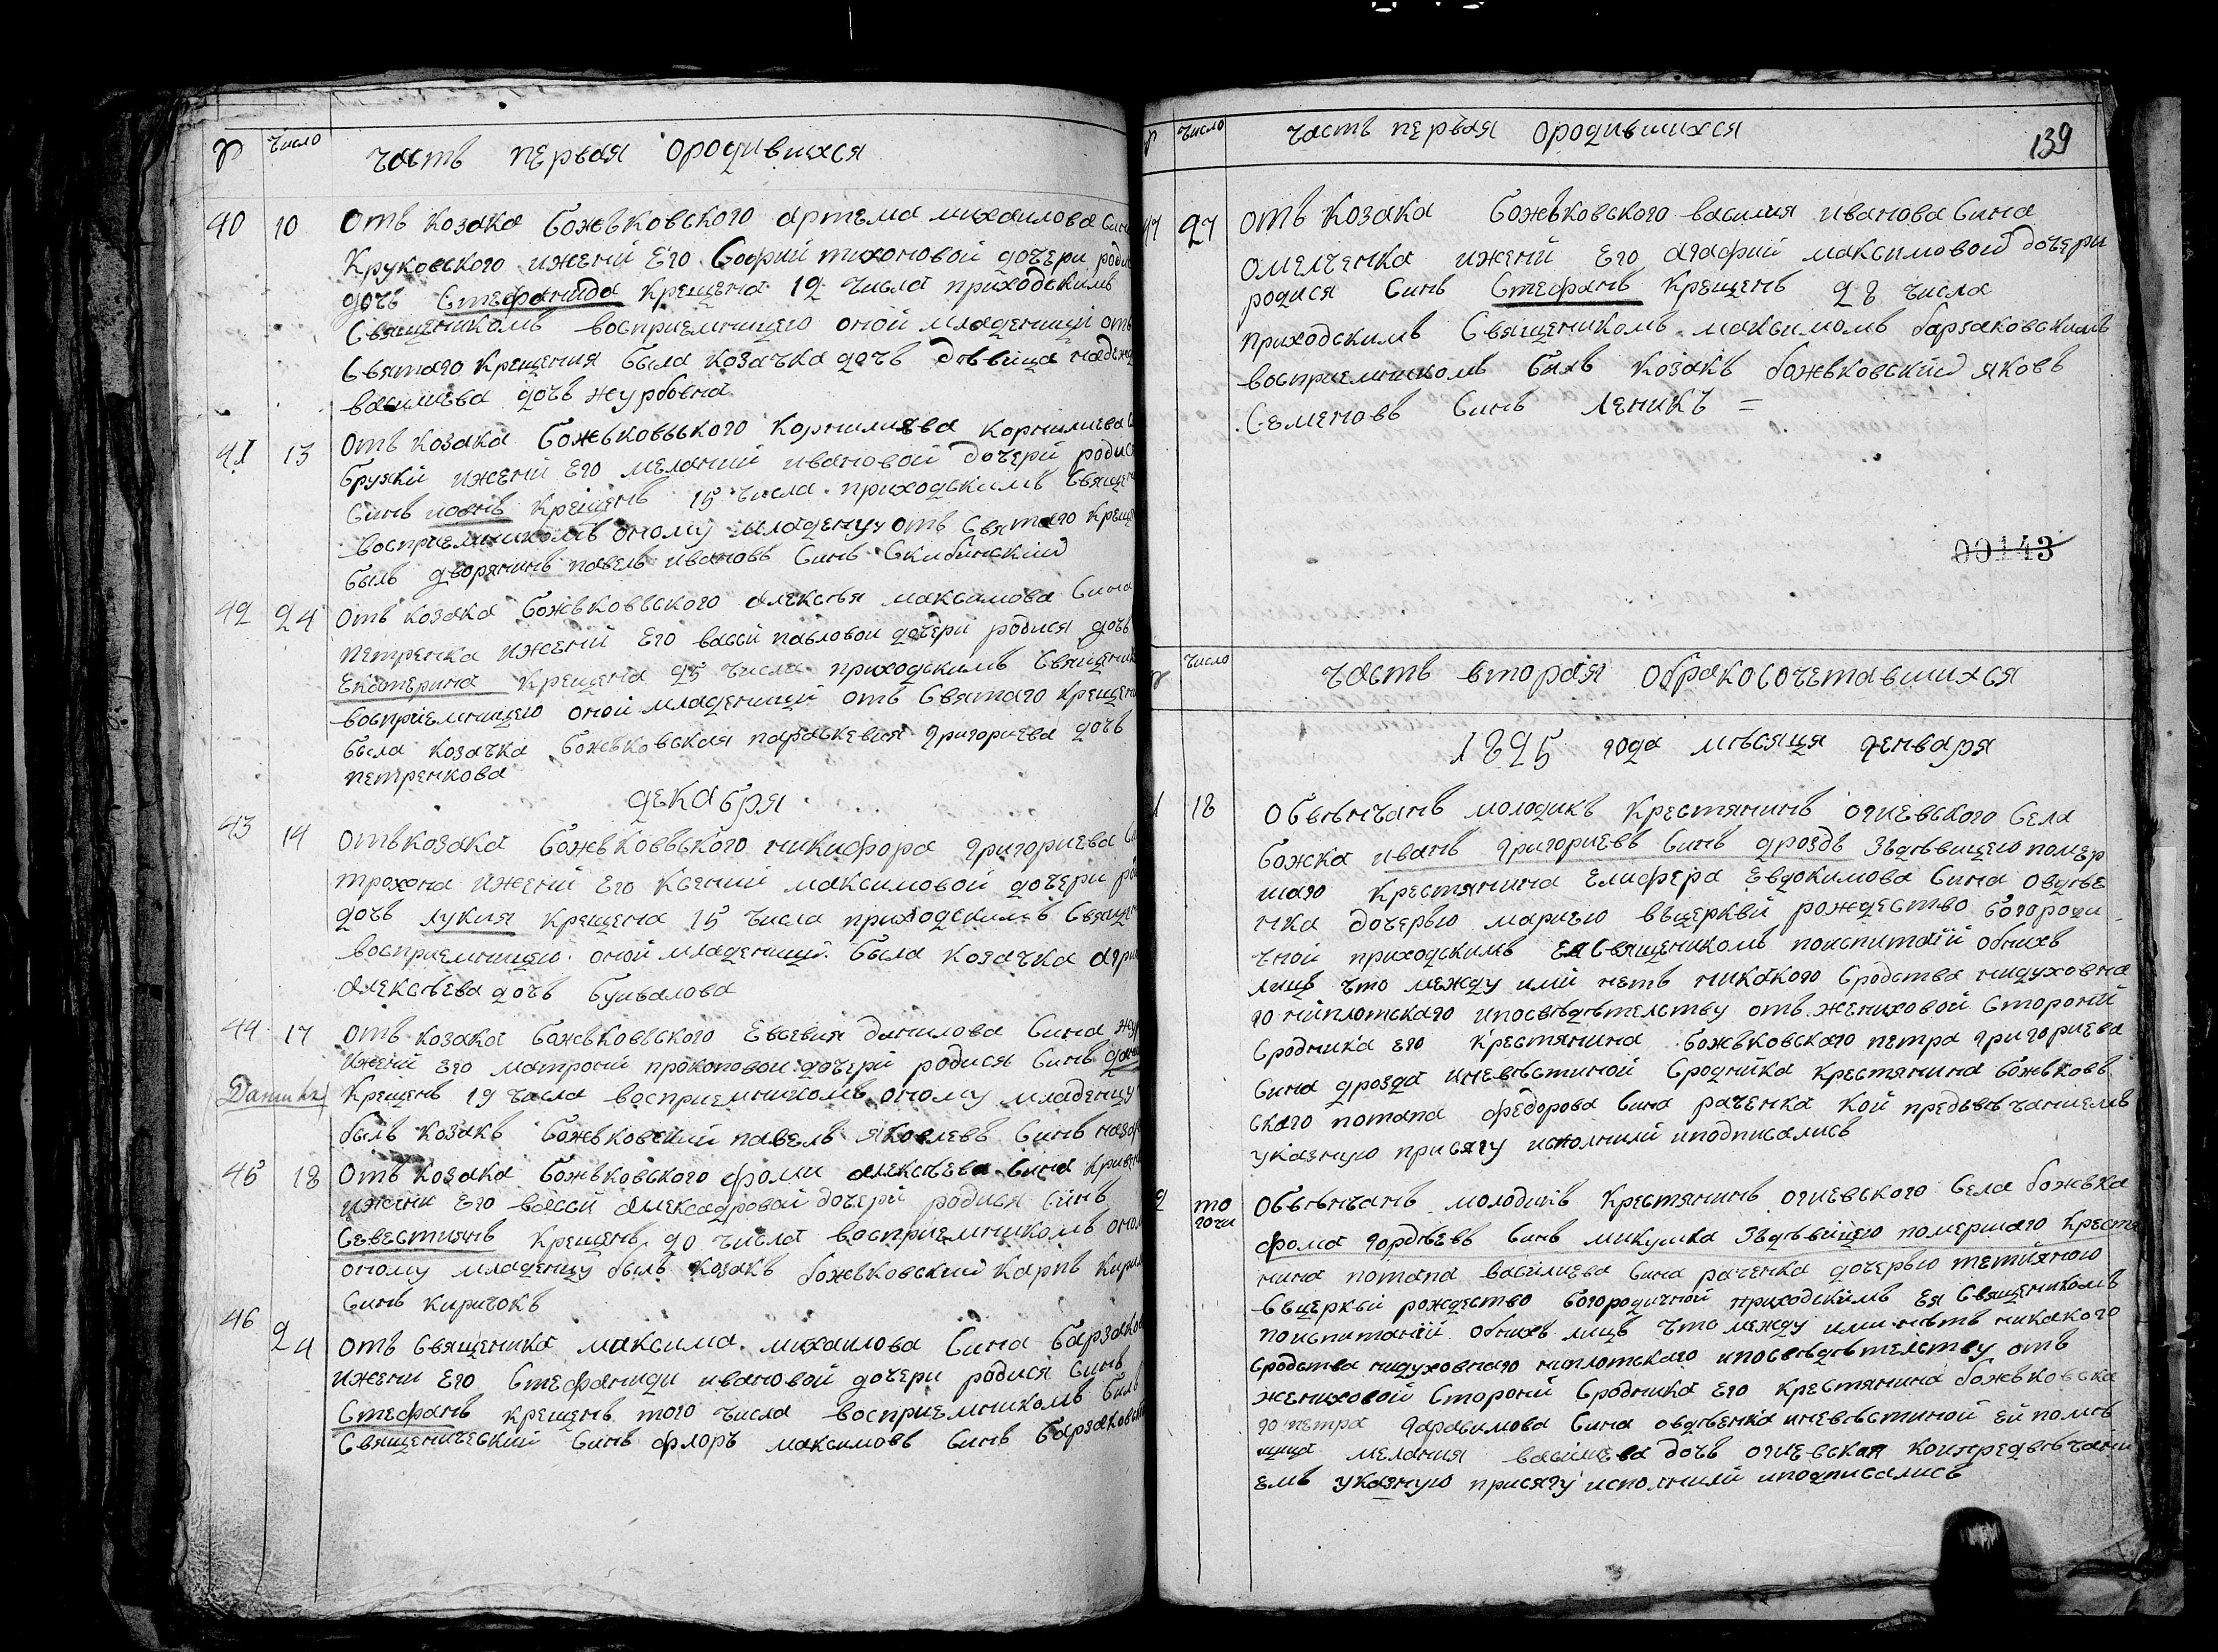 № Число Часть первая ородившихся
40 10 Отъ козака Божъковского артема михаилова Сина
Круковского ижений Его Софий тихоновой дочери роди
дочь Стефанида крещена 12 числа приходскимъ
Священикомъ восприемницею оной младеници отъ
Святаго крещения была козачка дочь дѣвица надежд
василиева дочь журбовна
41 13 Отъ козака Божъковъского корнилиява корнилиева С
Бружки ижений Его мелании ивановой дочерй родис
Синъ иоанъ крещенъ 15 числа приходскимъ Свящ
восприемникомъ оному младенцу отъ Святаго крещ
былъ дворянинъ павелъ ивановъ Синъ Скибинский
42 24 Отъ козака Божъковъского алексѣя максимова Сина
петренка ижений Его вассй павловой дочери родися дочь
Екатерина крещена 25 числа приходскимъ Священик
восприемницею оной младеници отъ Святаго крещени
была козачка Божъковская параскевия григориева дочь
петренкова
декабря
43 14 Отъ козака Божъковъского никифора григориева Си
трохона ижений Его Ксений максимовой дочери ро
дочь лукия крещена 15 числа приходскимъ Священ
восприемницею оной младеници была козачка агри
алексѣева дочь Бунвалова
44 17 Отъ козака Божъковъского Евсевия данилова Сина жур
ижений Его матроний прокоповой дочерй родися Синъ дани
Данииил крещенъ 19 числа восприемникомъ оному младенцу
былъ козакъ Божъковский павелъ яковлевъ Синъ назар
45 18 Отъ козака Божъковского фоми алексѣева Сина криве
ижени Его вассй алексадровой дочери родися Синъ
Севестиянъ крещенъ 20 числа восприемникомъ оном
оному младенцу былъ козакъ божъковский карпъ кири
Синъ киричокъ
46 24 Отъ Священика максима михаилова Сина барзаков
ижени Его Стефаниди ивановой дочери родися Синъ
Стефанъ крещенъ того числа восприемникомъ былъ
Священический Синъ флоръ максимовъ Синъ барзаковски
№ Число Часть первая ородившихся 139
47 27 Отъ козака Божъковского василия иванова Сина
омелченка ижений Его агафий максимовой дочери
родися Синъ Стефанъ крещенъ 28 числа
приходскимъ Священикомъ максимомъ барзаковскимъ
восприемникомъ былъ козакъ божъковский яковъ
Семеновъ Синъ леникъ =
00143
№ Число Часть вторая обракосочетавшихся
1825 года мѣсяца генваря
1 18 Обвѣнчанъ молодикъ крестянинъ огиевъского Села
Божка иванъ григориевъ Синъ дроздъ здѣвицею помер
шаго крестянина Елифера Евдокимова Сина овдѣе
нка дочерью мариею въцеркви рождество богороди
чной приходскимъ Ея Священикомъ поиспитаний обоихъ
лицъ что между ими нетъ никакого Сродства нидуховна
го ниплотскаго ипосвѣдѣтелству отъ жениховой Стороний
Сродника его крестянина Божъковского петра григориева
Сина дрозда иневѣстиной Сродника крестянина божъковъ
ского потапа федорова Сина раченка кой предъвѣнчаниемъ
указную присягу исполнили иподписались
2 то гочи Обвѣнчанъ молодикъ крестянинъ огиевского Села божька
фома гордѣевъ Синъ микушка здѣвицею помершаго крестя
нина потапа василиева Сина раченка дочерью тетияною
Въцеркви рождество богородичной приходскимъ Ея Священикомъ
поиспитаний обоихъ лицъ что между ими нѣтъ никакого
Сродства нидуховнаго ниплотскаго ипосвѣдѣтелству отъ
жениховой Стороний Сродника Его крестянина божъковска
го петра гарасимова Сина овдѣенка иневѣстиной ей помѣ
щица мелания василиева дочь огиевская коипредвѣнчани
емъ указную присягу исполнили иподписались